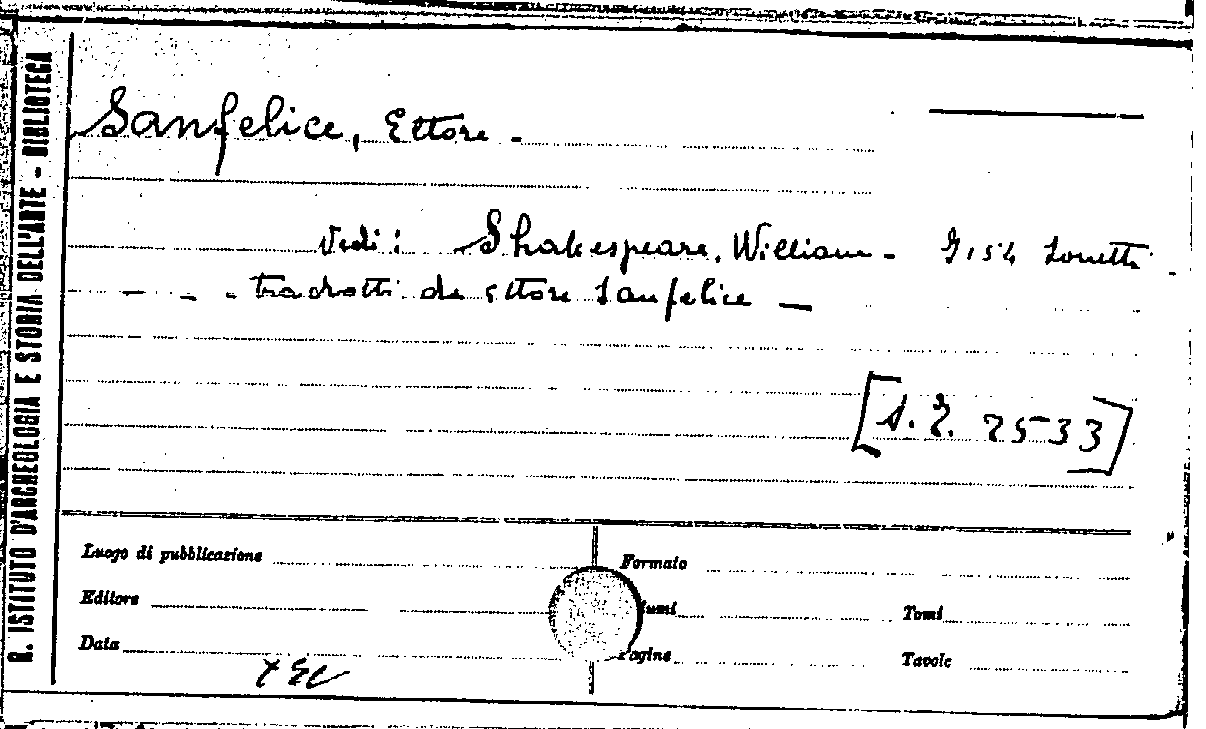 R. ISTITUTO D'ARCHEOLOGIA E STORIA DELL'ARTE - BIBLIOTECA
Sanfelice, Ettore -
Vedi: Shakespeare, William - I 154 Sonetti -
- - - tradotti da Ettore Sanfelice -
[2533]
Luogo di pubblicazione
Formato
Editore
umi
Tomi
Data
Pagine
Tavole